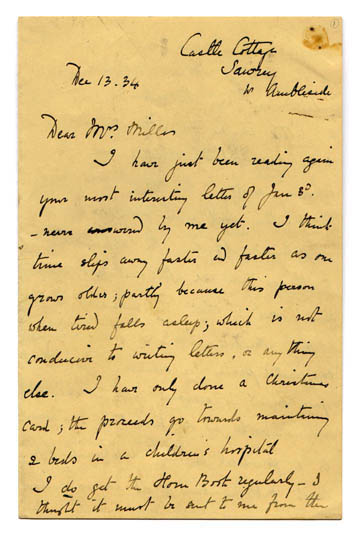 Castle Cottage
Sawrey
Dec 13. 34
nr Ambleside
Dear Mrs Miller
I have just been reading again
your most interesting letter of Jan 3d.
- never answered by me yet. I think
time slips away faster and faster as one
grows older; partly because this person
when tired falls asleep; which is not
conducive to writing letters, or anything
else. I have only done a Christmas
card; the proceeds go towards maintaining
2 beds in a children's hospital
I do get the Horn Book regularly - I
thought it must be sent to me from the